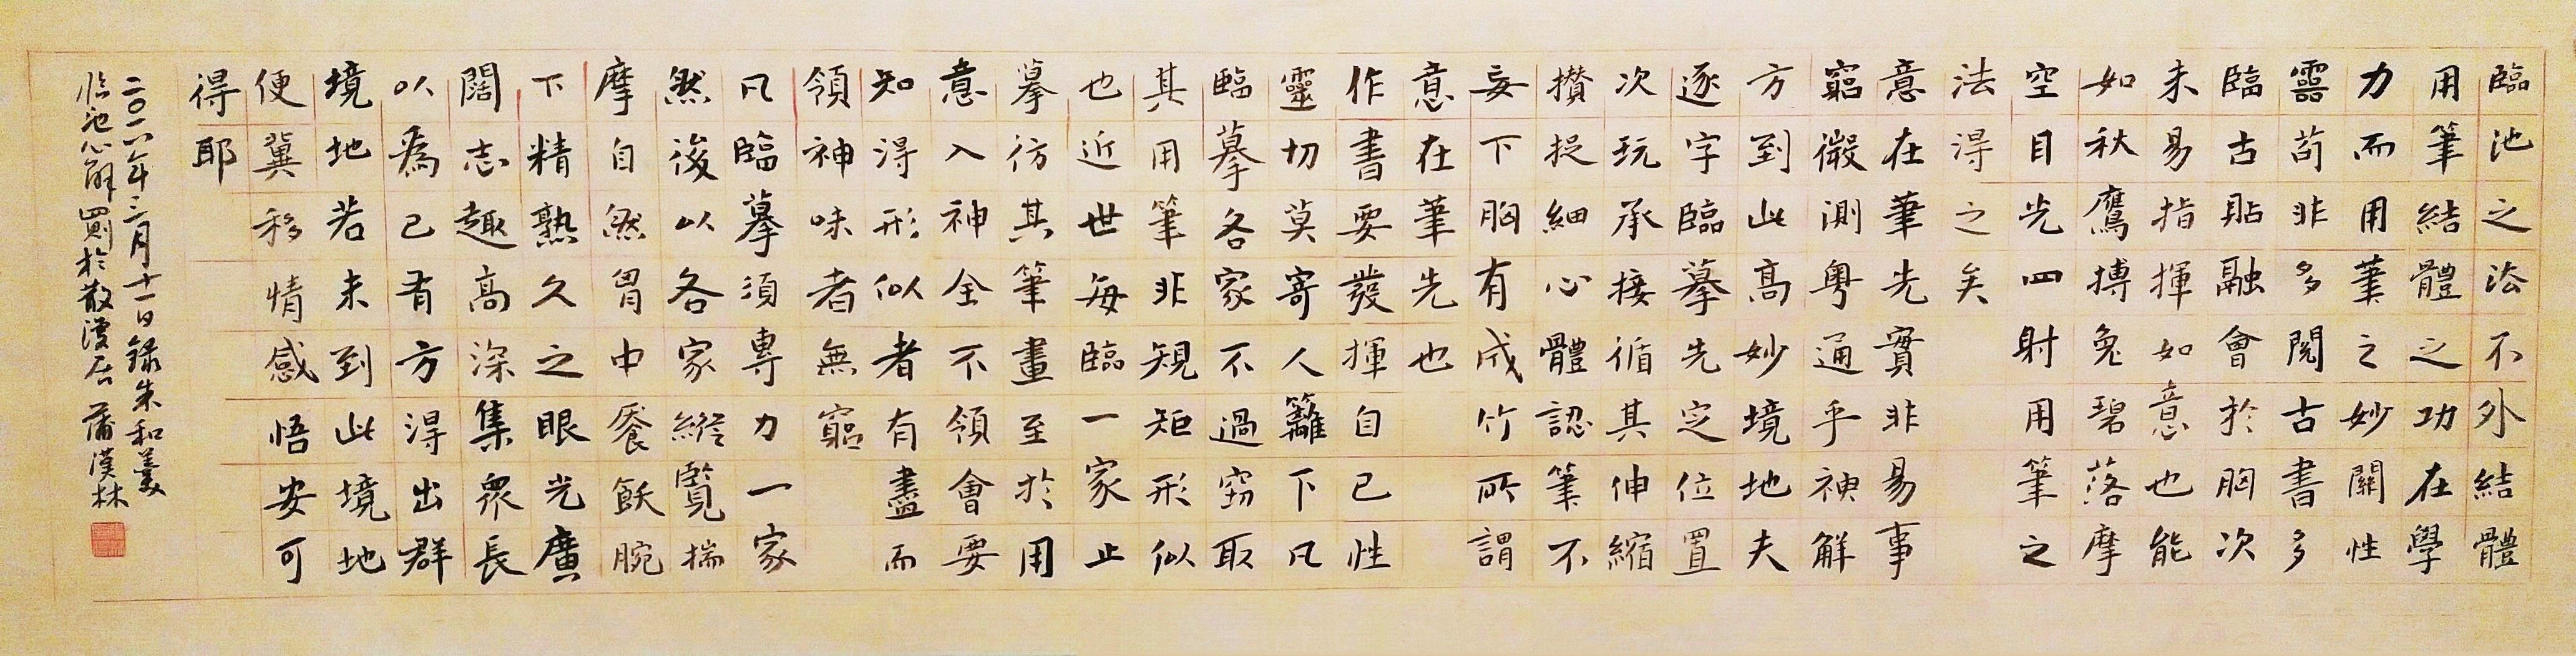 臨池之法不外結體
用筆結體之功在學
力而用筆之妙關性
靈苟非多閱古書多
臨古貼融會於胸次
未易指揮如意也能
如秋鷹搏兔碧落摩
空目光四射用筆之
法得之矣
意在筆先實非易事
窮微測粵通乎神解
方到此高妙境地夫
逐字臨摹先定位置
次玩承接循其伸縮
攢捉細心體認筆不
妄下胸有成竹所謂
意在筆先也
作書要發揮自己性
靈切莫寄人籬下凡
臨摹各家不過窃取
其用筆非規矩形似
也近世每臨一家止
摹彷其筆畫至於用
意入神全不領會要
知得形似者有盡而
領神味者無窮
凡臨摹須專力一家
然後以各家縱覽揣
摩自然胃中饜飫腕
下精熟久之眼光廣
闊志趣高深集眾長
以為己有方得出群
境地若未到此境地
便冀移情感悟安可
得耶
二〇一六年三月十一日錄朱和羹
臨池心解四則於散漫居 蒲漢林